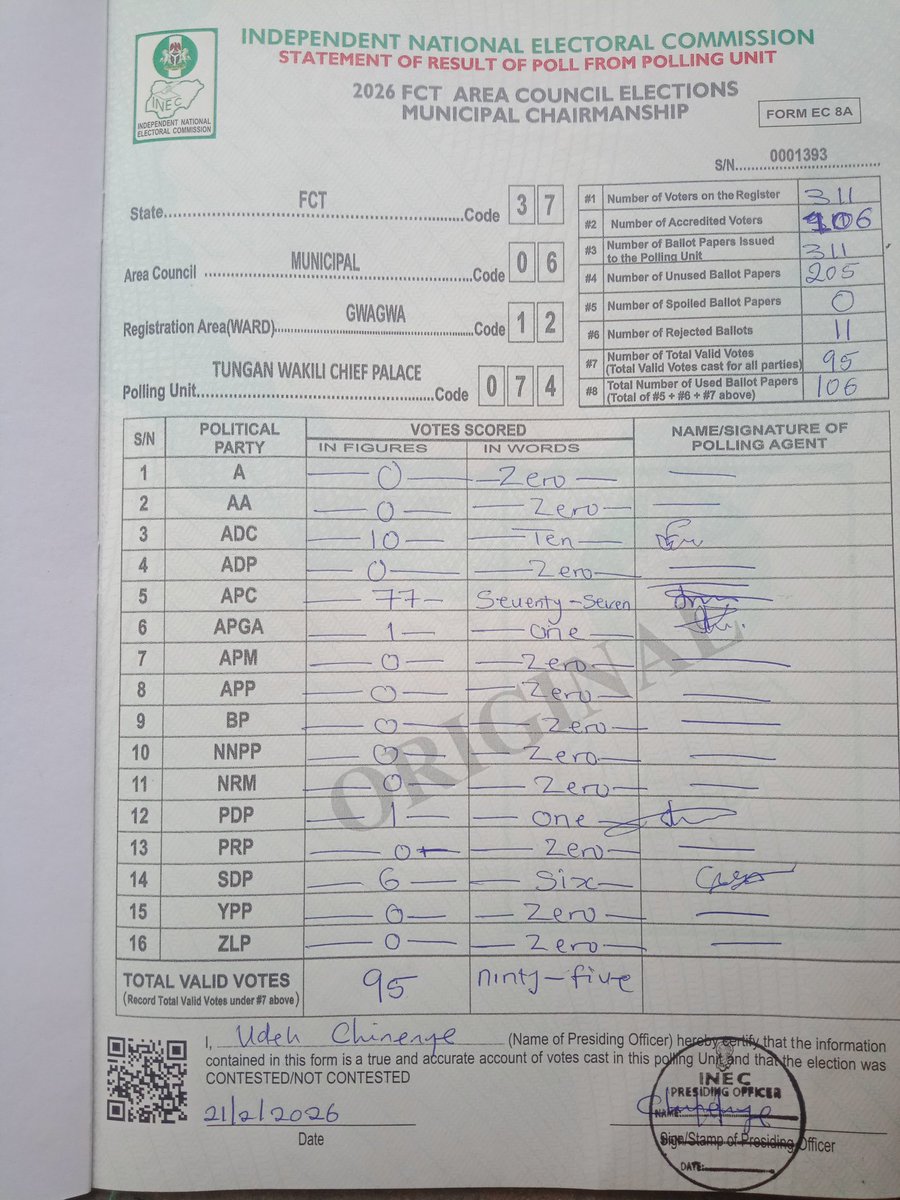 INDEPENDENT NATIONAL ELECTORAL COMMISSION
STATEMENT OF RESULT OF POLL FROM POLLING UNIT
2026 FCT AREA COUNCIL ELECTIONS
MUNICIPAL CHAIRMANSHIP
FORM EC 8A
INEC
INDEPENDENT NATIONAL
ELECTORAL COMMISSION
S/N 0001393
State FCT Code 3 7
Area Council MUNICIPAL Code 0 6
Registration Area(WARD) GWAGWA Code 1 2
Polling Unit TUNGAN WAKILI CHIEF PALACE Code 0 7 4
#1 Number of Voters on the Register 311
#2 Number of Accredited Voters 106
#3 Number of Ballot Papers Issued
to the Polling Unit 311
#4 Number of Unused Ballot Papers 205
#5 Number of Spoiled Ballot Papers 0
#6 Number of Rejected Ballots 11
#7 Number of Total Valid Votes
(Total Valid Votes cast for all parties) 95
#8 Total Number of Used Ballot Papers
(Total of #5 + #6 + #7 above) 106
S/N POLITICAL PARTY VOTES SCORED NAME/SIGNATURE OF POLLING AGENT
IN FIGURES IN WORDS
1 A 0 Zero
2 AA 0 Zero
3 ADC 10 Ten
4 ADP 0 Zero
5 APC 77 Seventy-Seven
6 APGA 1 one
7 APM 0 Zero
8 APP 0 Zero
9 BP 0 Zero
10 NNPP 0 Zero
11 NRM 0 Zero
12 PDP 1 one
13 PRP 0 Zero
14 SDP 6 Six
15 YPP 0 Zero
16 ZLP 0 Zero
ORIGINAL
TOTAL VALID VOTES 95 Ninty-five
(Record Total Valid Votes under #7 above)
I, Udeh Chinenye (Name of Presiding Officer) hereby certify that the information
contained in this form is a true and accurate account of votes cast in this polling Unit and that the election was
CONTESTED/NOT CONTESTED
21/2/2026
Date
INEC
PRESIDING OFFICER
NAME:
Sign/Stamp of Presiding Officer
DATE: